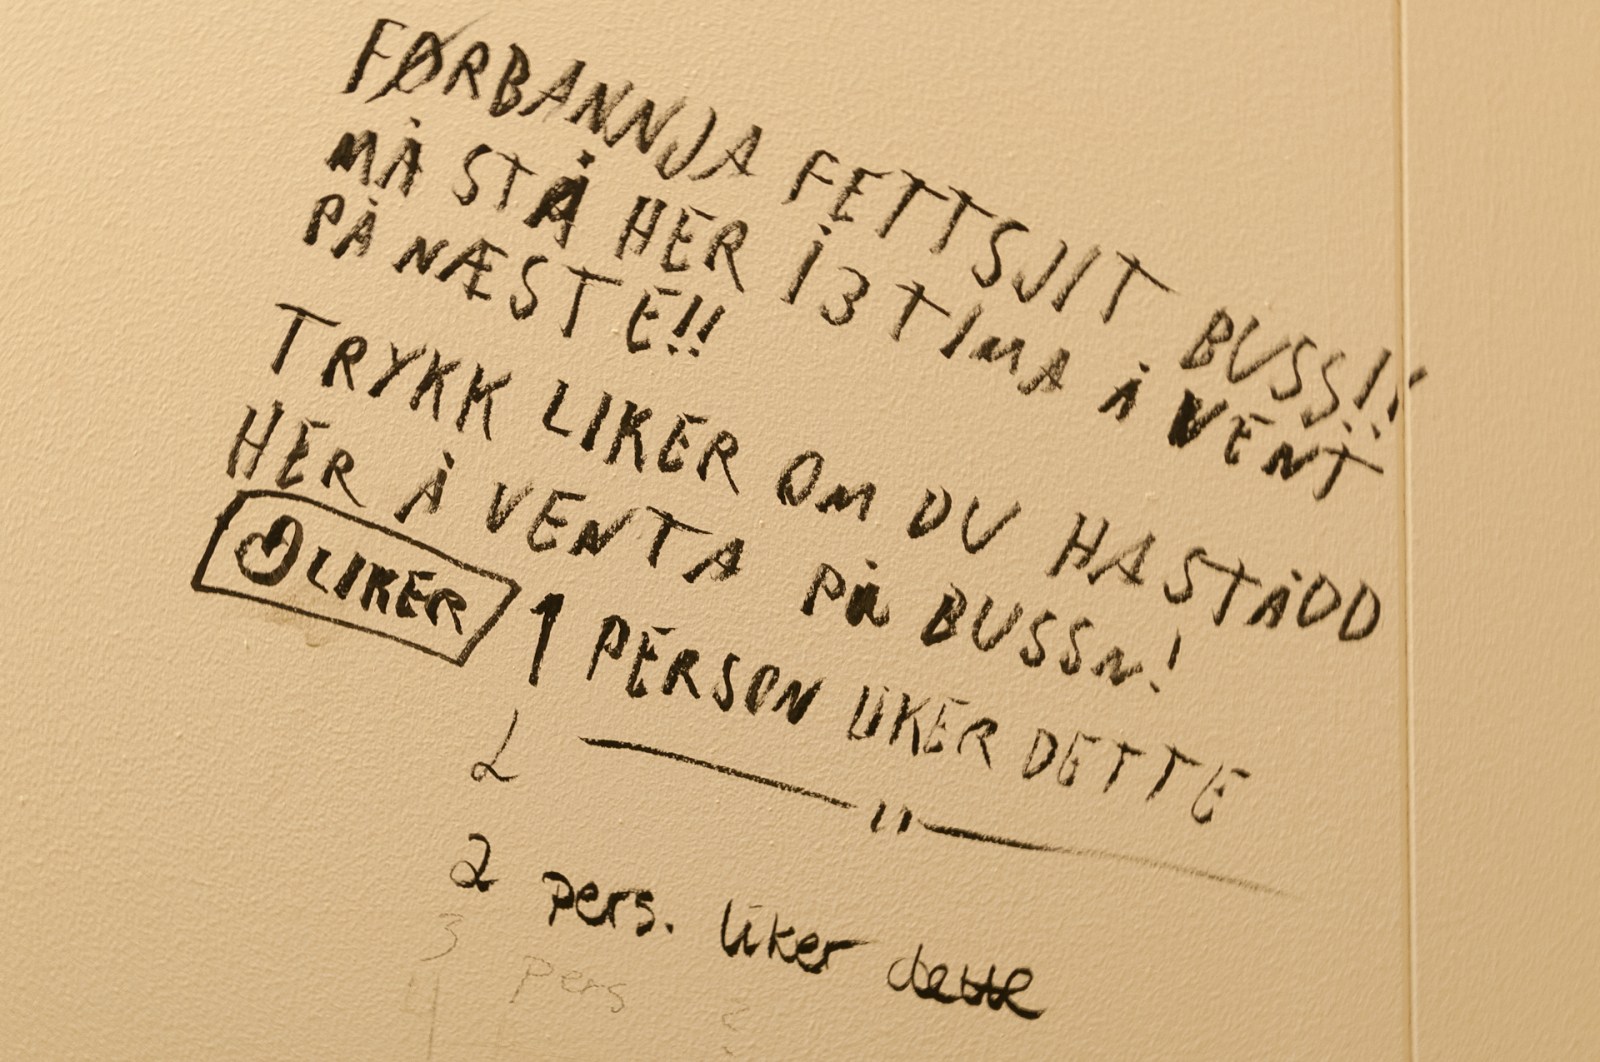 FØRBANNJA FETTSJIT BUSS!!
MÅ STÅ HER I 3 TIMA Å VENT
PÅ NÆSTE!!
TRYKK LIKER OM DU HA STÅDD
HER Å VENTA PÅ BUSSN!
LIKER 1 PERSON LIKER DETTE
2 — " —
2 pers. liker dette
3 pers
4